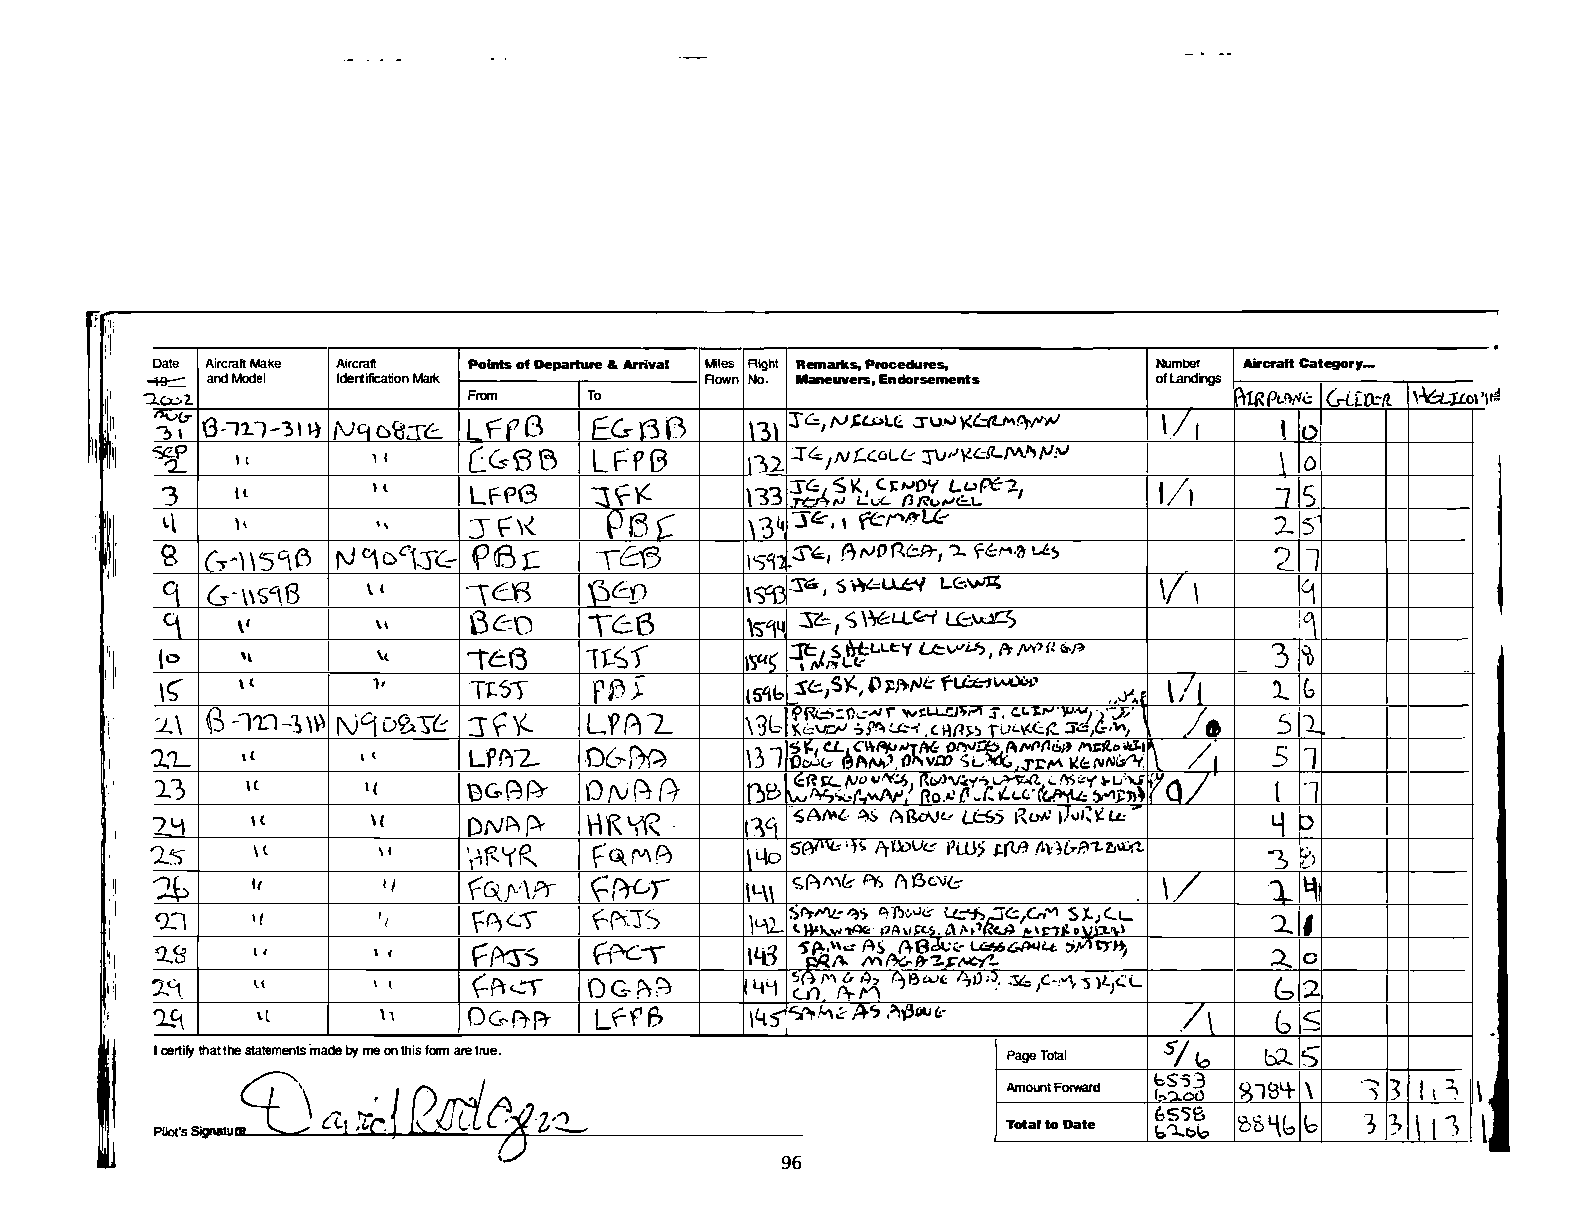 Date Aircraft Make Aircraft Points of Departure & Arrival Miles Flight Remarks, Procedures, Number Aircraft Category...
19 and Model Identification Mark Flown No. Maneuvers, Endorsements of Landings
2002 From To AIRPLANE GLIDER
AUG
31 B-727-31H N908JE LFPB EGBB 131 JE, NICOLE JUNKERMANN 1/1 1 0
SEP
2 " " EGBB LFPB 132 JE, NICOLE JUNKERMANN 1 0
3 " " LFPB JFK 133 JE, SK, CINDY LOPEZ, 1/1 7 5
JEAN LUC BRUNEL
4 " " JFK PBI 134 JE, 1 FEMALE 2 5
8 G-1159B N909JE PBI TEB 1592 JE, ANDREA, 2 FEMALES 2 7
9 G-1159B " TEB BED 1593 JE, SHELLEY LEWIS 1/1 9
9 " " BED TEB 1594 JE, SHELLEY LEWIS 9
10 " " TEB TIST 1595 JE, SHELLEY LEWIS, ANDREA 3 8
1 MALE
15 " " TIST PBI 1596 JE, SK, DIANE FLEETWOOD 1/1 2 6
21 B-727-31H N908JE JFK LPAZ 136 PRESIDENT WILLIAM J. CLINTON, 5 2
KEVIN SPACEY, CHRIS TUCKER JE, GM,
22 " " LPAZ DGAA 137 SK, CL, CHAUNTAE DAVIES, ANDREA /1 5 7
DOUG BAND, DAVID SLANG, JIM KENNEZ
23 " " DGAA DNAA 138 ERIC NONACS, RODNEY SLATER, CASEY 1 7
WASSERMAN, RON BURKLE GAYLE SMITH
24 " " DNAA HRYR 139 SAME AS ABOVE LESS RON BURKLE 4 0
25 " " HRYR FQMA 140 SAME AS ABOVE PLUS IRA MAGAZINER 3 8
26 " " FQMA FACT 141 SAME AS ABOVE 1/ 2 4
27 " " FACT FAJS 142 SAME AS ABOVE LESS JE, GM SK, CL 2 1
CHAUNTAE DAVIES, ANDREA
28 " " FAJS FACT 143 SAME AS ABOVE LESS GAYLE SMITH, 2 0
IRA
29 " " FACT DGAA 144 SAME AS ABOVE ADD, JE, GM, SK, CL 6 2
CD, AM
29 " " DGAA LFPB 145 SAME AS ABOVE /1 6 5
I certify that the statements made by me on this form are true. Page Total 5/6 62 5
Amount Forward 6553 6200 8784 1 3 3
Pilot's Signature David Rodgers Total to Date 6558 6206 8846 6 3 3
96